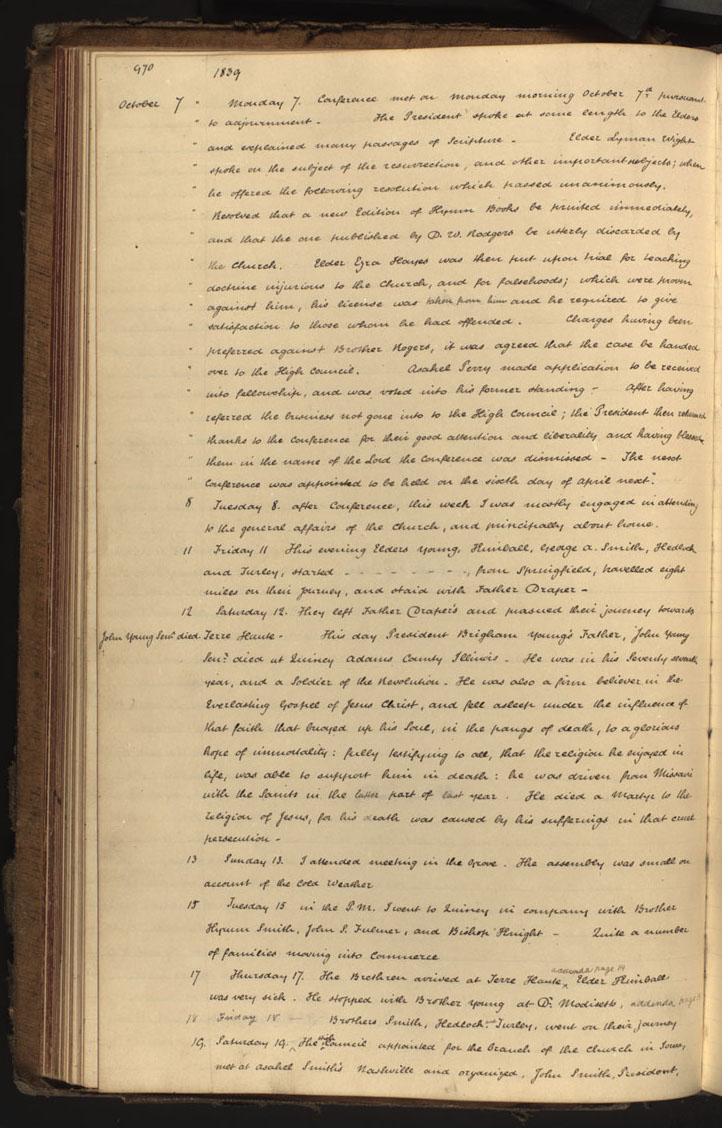 970 1839
October 7 " Monday 7. Conference met on Monday morning October 7th pursuant
" to adjournment - The President spoke at some length to the Elders
" and explained many passages of Scripture - Elder Lyman Wight
" spoke on the subject of the resurrection, and other important subjects; when
" he offered the following resolution which passed unanimously.
" Resolved that a new Edition of Hymn Books be printed immediately,
" and that the one published by D. W. Rodgers be utterly discarded by
" the Church. Elder Ezra Hayes was then put upon trial for teaching
" doctrine injurious to the Church, and for falsehoods; which were proven
" against him, his license was taken from him and he required to give
" satisfaction to those whom he had offended. Charges having been
" preferred against Brother Rogers, it was agreed that the case be handed
" over to the High Council. Asahel Perry made application to be received
" into fellowship, and was voted into his former standing - After having
" referred the business not gone into to the High Council; the President then returned
" thanks to the Conference for their good attention and liberality and having blessed
" them in the name of the Lord the Conference was dismissed - The next
" Conference was appointed to be held on the sixth day of April next".
8 Tuesday 8. after Conference, this week I was mostly engaged in attending
to the general affairs of the Church, and principally about home.
11 Friday 11 This evening Elders Young, Kimball, George A. Smith, Hedlock
and Turley, started - - - - - - - -, from Springfield, travelled eight
miles on their Journey, and staid with Father Draper -
12 Saturday 12. They left Father Draper's and pursued their journey towards
John Young Senr died. Terre Haute - This day President Brigham Young's Father, John Young
Senr died at Quincy Adams County Illinois - He was in his Seventy seventh
year, and a Soldier of the Revolution. He was also a firm believer in the
Everlasting Gospel of Jesus Christ, and fell asleep under the influence of
that faith that buoyed up his Soul, in the pangs of death, to a glorious
hope of immortality: fully testifying to all, that the religion he enjoyed in
life, was able to support him in death: he was driven from Missouri
with the Saints in the latter part of last year. He died a Martyr to the
religion of Jesus, for his death was caused by his sufferings in that cruel
persecution -
13 Sunday 13. I attended meeting in the Grove. The assembly was small on
account of the Cold Weather
15 Tuesday 15 in the P.M. I went to Quincy in company with Brother
Hyrum Smith, John S. Fulmer, and Bishop Knight - Quite a number
of families moving into Commerce
addenda page 14
17 Thursday 17. The Brethren arrived at Terre Haute, Elder Kimball
was very sick. He stopped with Brother Young at Dr. Modisetts, addenda page
18 Friday 18 - Brothers Smith, Hedlock and Turley, went on their journey
19. Saturday 19. The High Council appointed for the branch of the Church in Iowa,
met at Asahel Smith's Nashville and organized. John Smith, President.